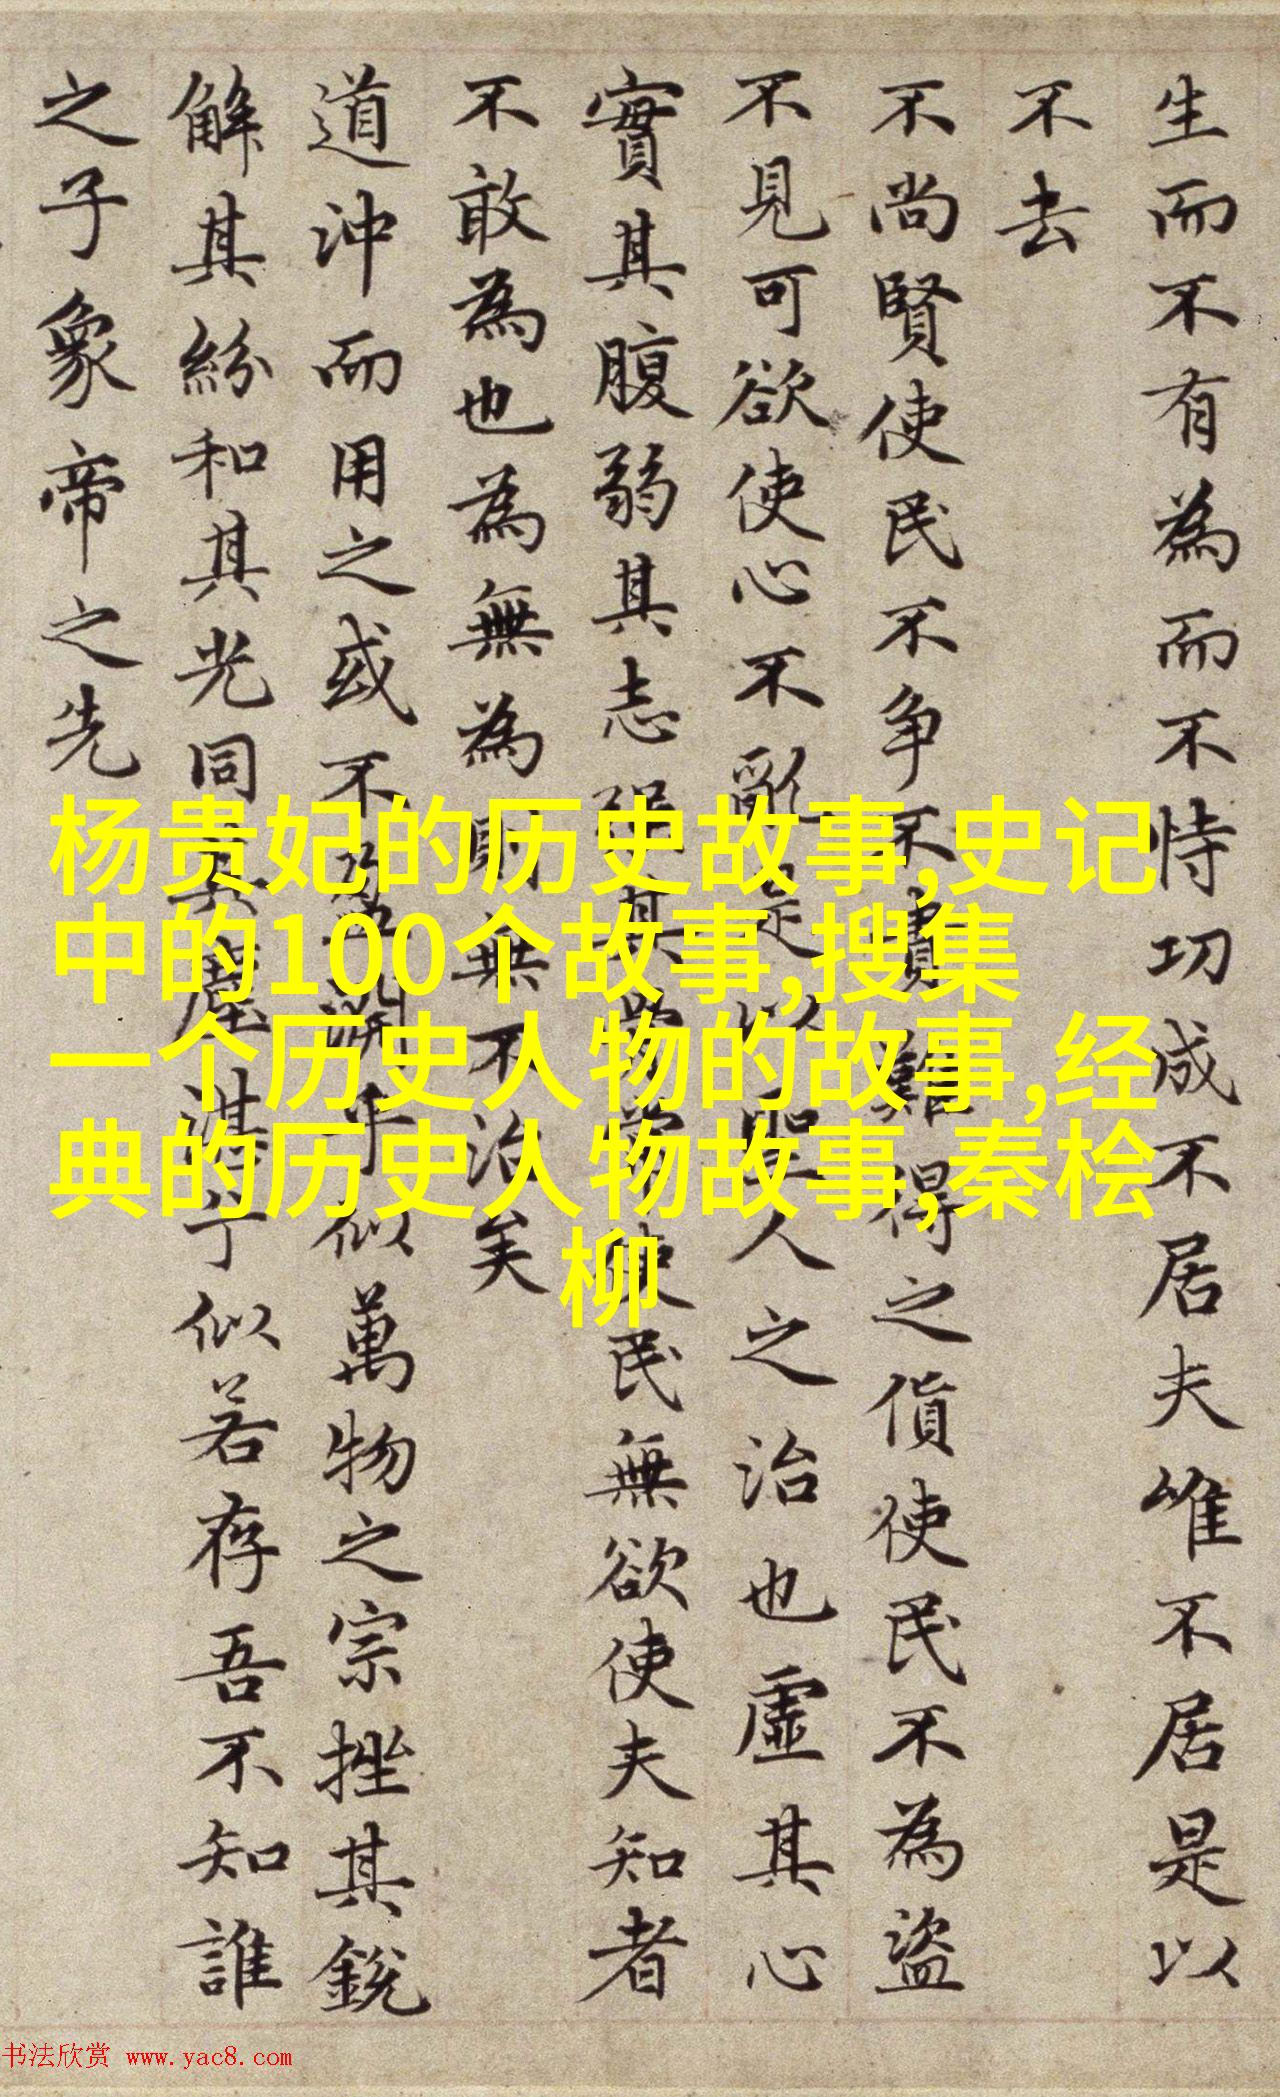 生而不有為而不恃功成不居夫唯不居是以
不去
不尚賢使民不争不貴難得之貨使民不為盜
不見可欲使心不亂是以聖人之治也虛其心
實其腹弱其志強其骨常使民無欲使夫知者
不敢為也為無為則無不治矣
道沖而用之或不盈淵乎似萬物之宗挫其銳
解其紛和其光同其塵湛兮似若存吾不知誰
之子象帝之先
杨贵妃的历史故事,史记
中的100个故事,搜集
一个历史人物的故事,经
典的历史人物故事,秦桧
柳
书法欣赏 www.yac8.com